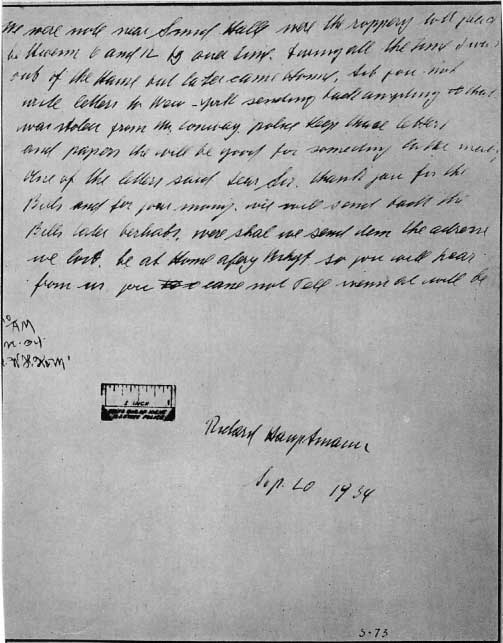 we were not near Smith Hall were the roppery tok place
be thwenn 6 and 12 by our time. During all the time I was
out of the House but later came Home. did you not
write letters to New-York sending back anything that
was stolen from Mr. Conway, police keep those letters
and papers the will be good for someding later
One of the letters said dear Sir. thank you for the
Bills and for your money. we will send back the
Bills later perhaps, were shal we send dem the adresse
we lost. be at Home afery Nihgt so you will hear
from us you cane not tell wenn it will be
10 AM
1 INCH
Richard Hauptmann
Sep. 20 1934
S-73